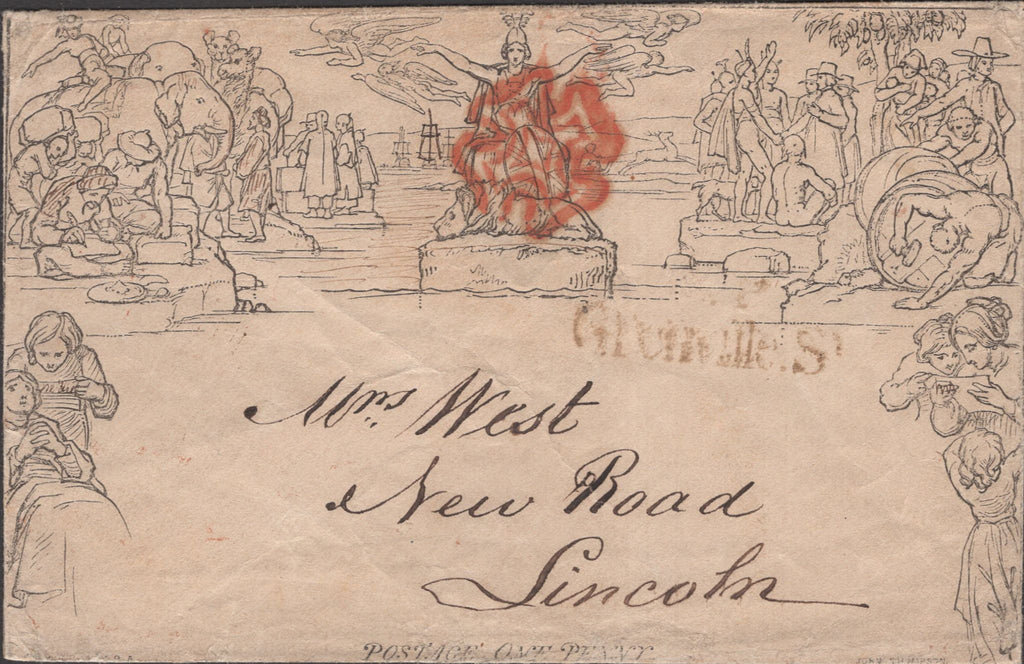 Grenville.St
Mrs. West
New Road
Lincoln
POSTAGE ONE PENNY.